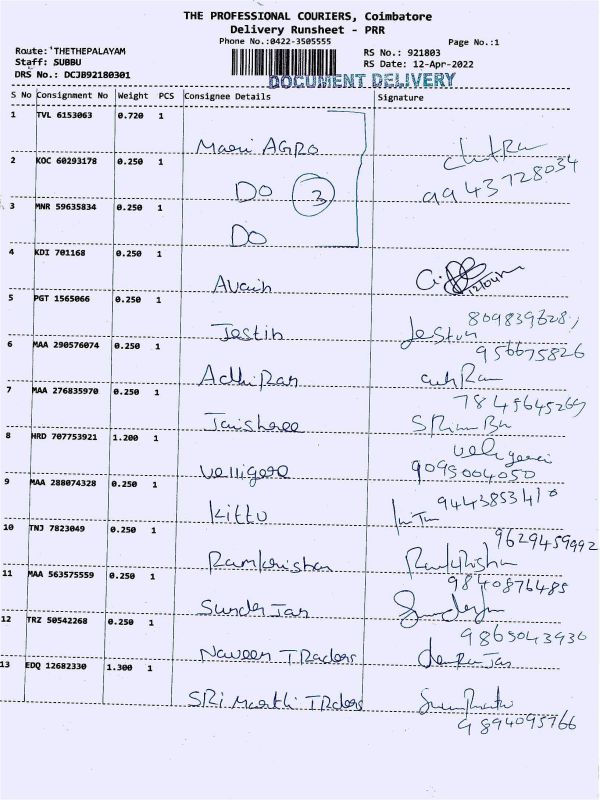 THE PROFESSIONAL COURIERS, Coimbatore
Delivery Runsheet - PRR
Phone No.:0422-3505555
Page No.:1
Route:'THETHEPALAYAM
RS No.: 921803
Staff: SUBBU
RS Date: 12-Apr-2022
DRS No.: DCJB92180301
DOCUMENT DELIVERY
S No Consignment No Weight PCS Consignee Details Signature
1 TVL 6153063 0.720 1
AGRO
2 KOC 60293178 0.250 1
DO 3
9943728034
3 MNR 59635834 0.250 1
DO
4 KDI 701168 0.250 1
12/04/
5 PGT 1565066 0.250 1
Jestin
Jestin
956675826
6 MAA 290576074 0.250 1
AdhiRan
7 MAA 276835970 0.250 1
7845645269
Jaishree
8 HRD 707753921 1.200 1
Velligere
9095004050
9 MAA 288074328 0.250 1
94443853410
Kittu
10 TNJ 7823049 0.250 1
9629459992
Ramkrishan
11 MAA 563575559 0.250 1
9840876485
Sunder Jan
12 TRZ 50542268 0.250 1
9865043936
Naveen TRaders
13 EDQ 12682330 1.300 1
SRi TRaders
9894095766